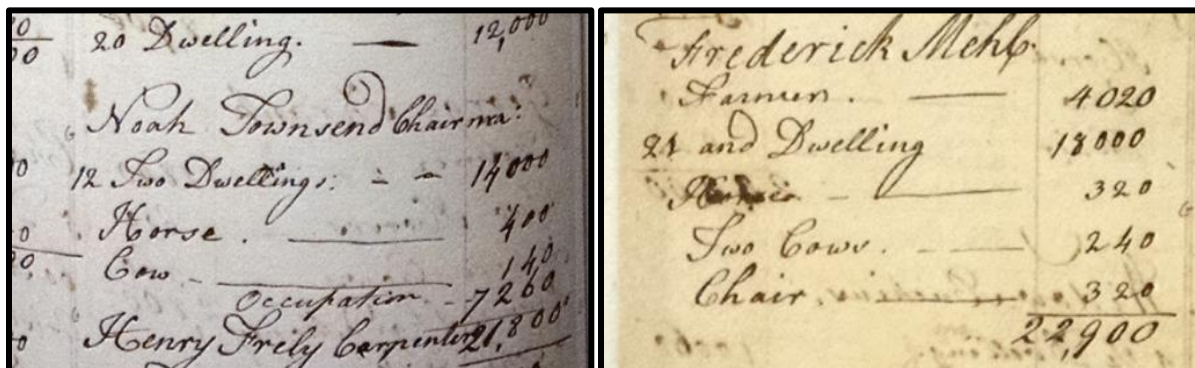 20 Dwelling. — 12,000
Noah Townsend Chairma:
12 Two Dwellings: - - 14000
Horse. — 400
Cow — 140
Occupation - 7260
Henry Frily Carpenter 21,800
Frederick Mehl
Farmer. — 4020
21 and Dwelling 18000
— 320
Two Cows. — 240
Chair. — 320
22,900